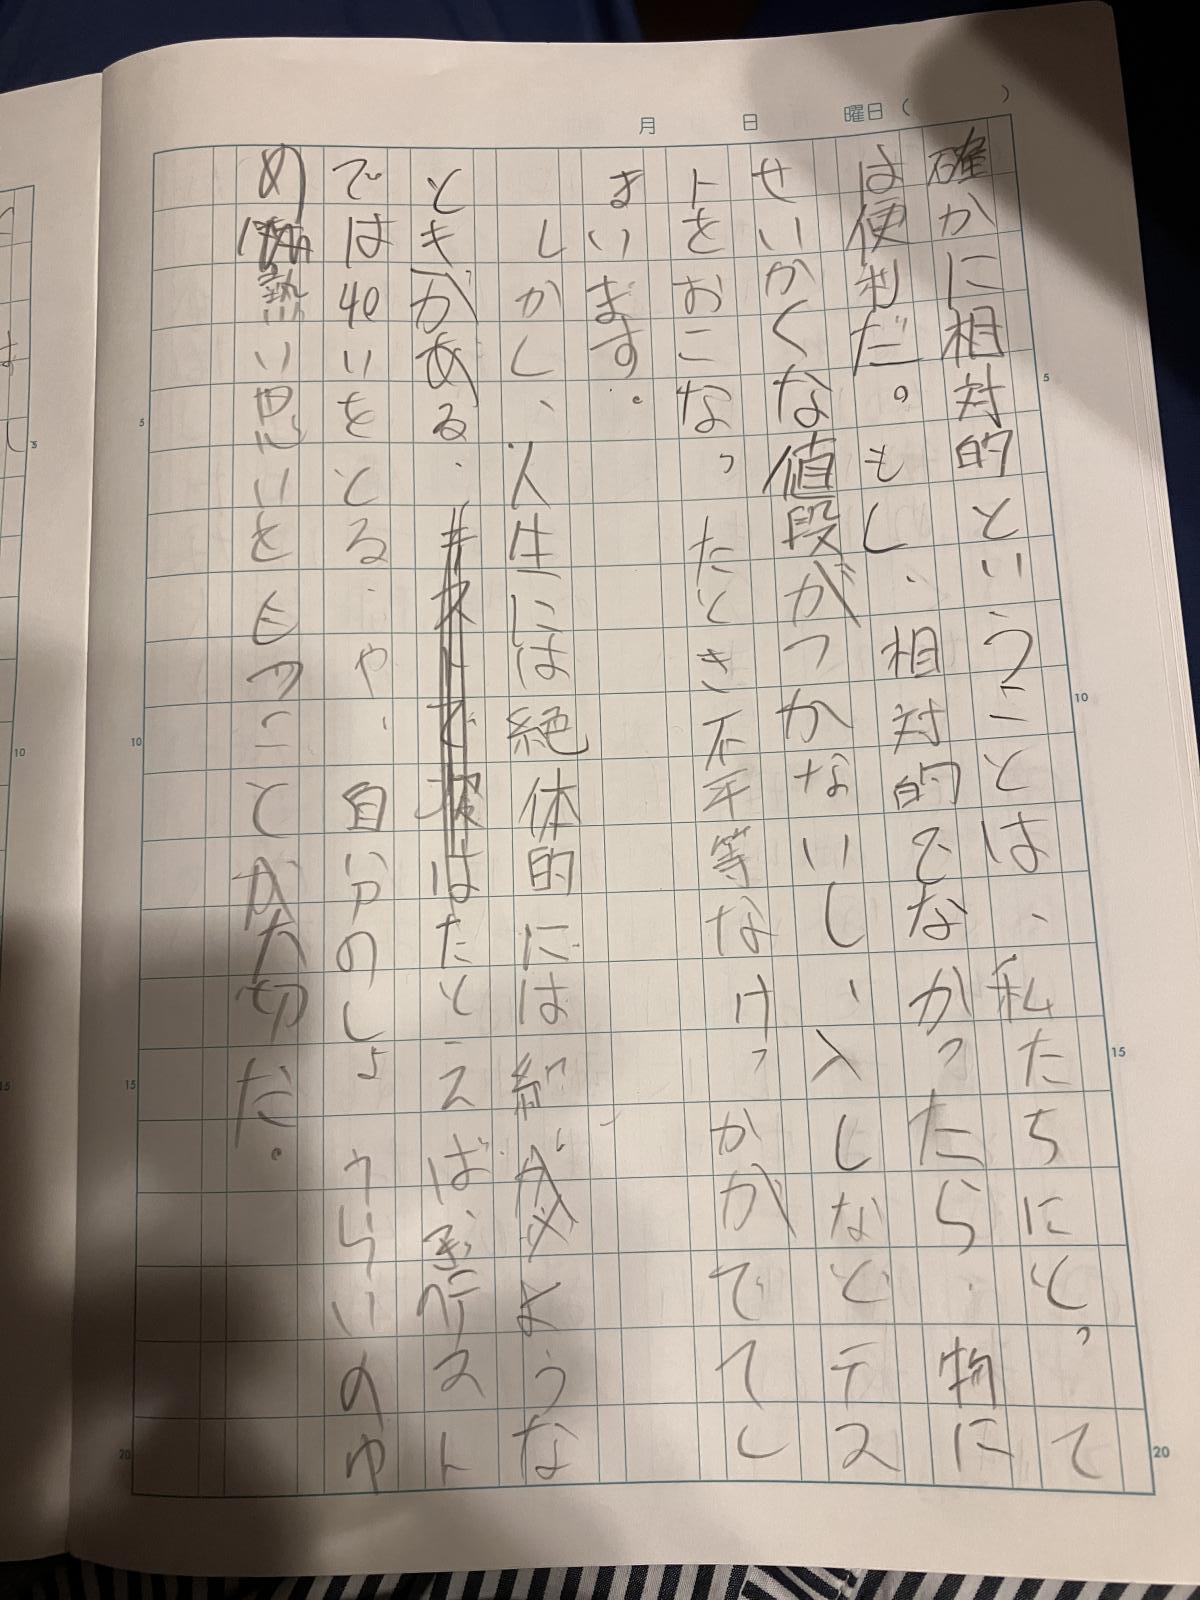 月 日 曜日( )
確かに相対的ということは、私たちにとって
は便利だ。もし、相対的でなかったら、物に
せいかくな値段がつかないし、入しなどテス
トをおこなったとき不平等なけっかがでてし
まいます。
しかし、人生には絶体的には
ような
ときがある。はたとえば
テスト
では40いをとる、や、自分のしょうらいのゆ
め 熱い思いをもつことが大切だ。
5
10
15
20
5
10
15
20
5
10
15